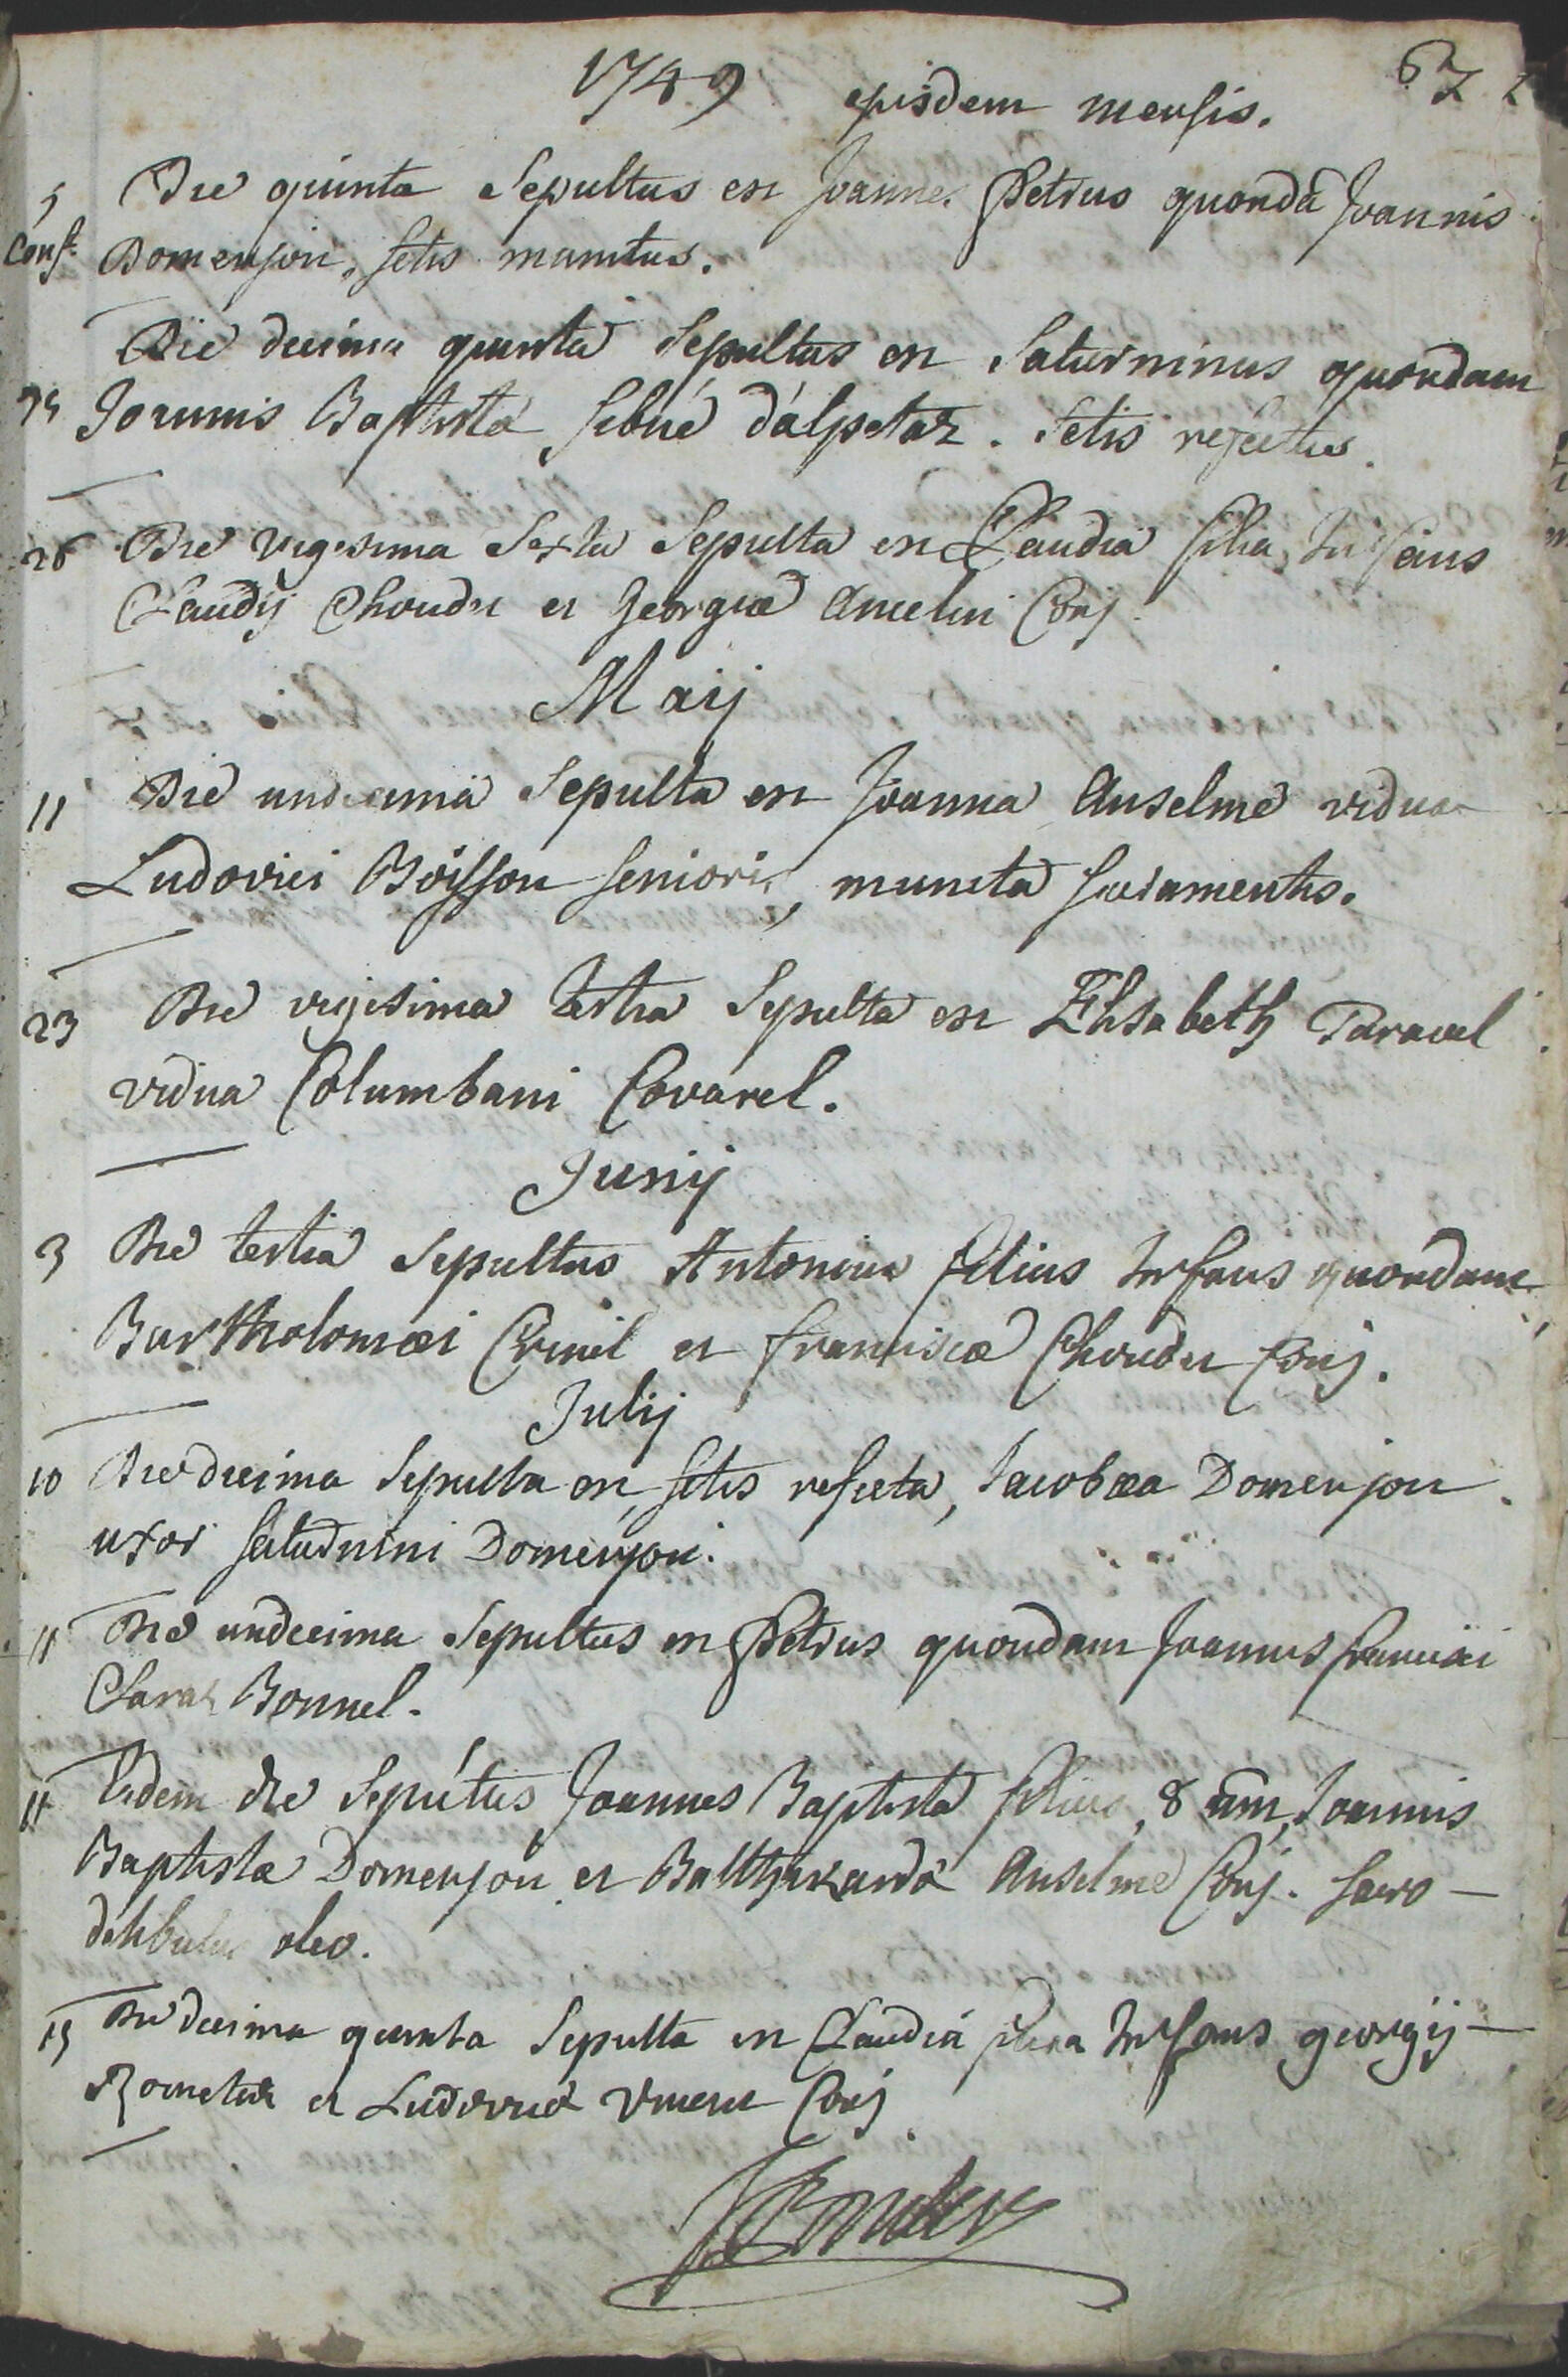 1749 ejusdem mensis. 67
5 Die quinta Sepultus est Joannes Petrus quondā Joannis
Conf. Domenjon, sctis munitus.
Die decima quinta Sepultus est Saturninus quondam
15 Joannis Baptista sibué d'alpetaz. Sctis refectus.
26 Die vigesima Sexta Sepulta est Claudia filia Infans
Claudij Choudu et Georgiæ Ancelin Conj.
Maij
11 Die undecima Sepulta est Joanna Anselme vidua
Ludovici Boisson senioris, munita sacramentis.
23 Die vigesima tertia Sepulta est Elisabeth Paravel
vidua Columbani Covarel.
Junij
3 Die tertia Sepultus Antonius filius Infans quondam
Bartholomæi Crinel et franciscæ Choudu Conj.
Julij
10 Die decima Sepulta est, sctis refecta, Jacobæa Domenjon
uxor saturnini Domenjon.
11 Die undecima Sepultus est Petrus quondam Joannis francisci
Claraz Bonnel.
11 Eadem die Sepultus Joannes Baptista filius, 8 ann, Joannis
Baptistæ Domenjon et Balthazarda Anselme Conj. sacro -
delibutus oleo.
15 Die decima quinta Sepulta est Claudia filia Infans georgij -
et Ludovica Conj.